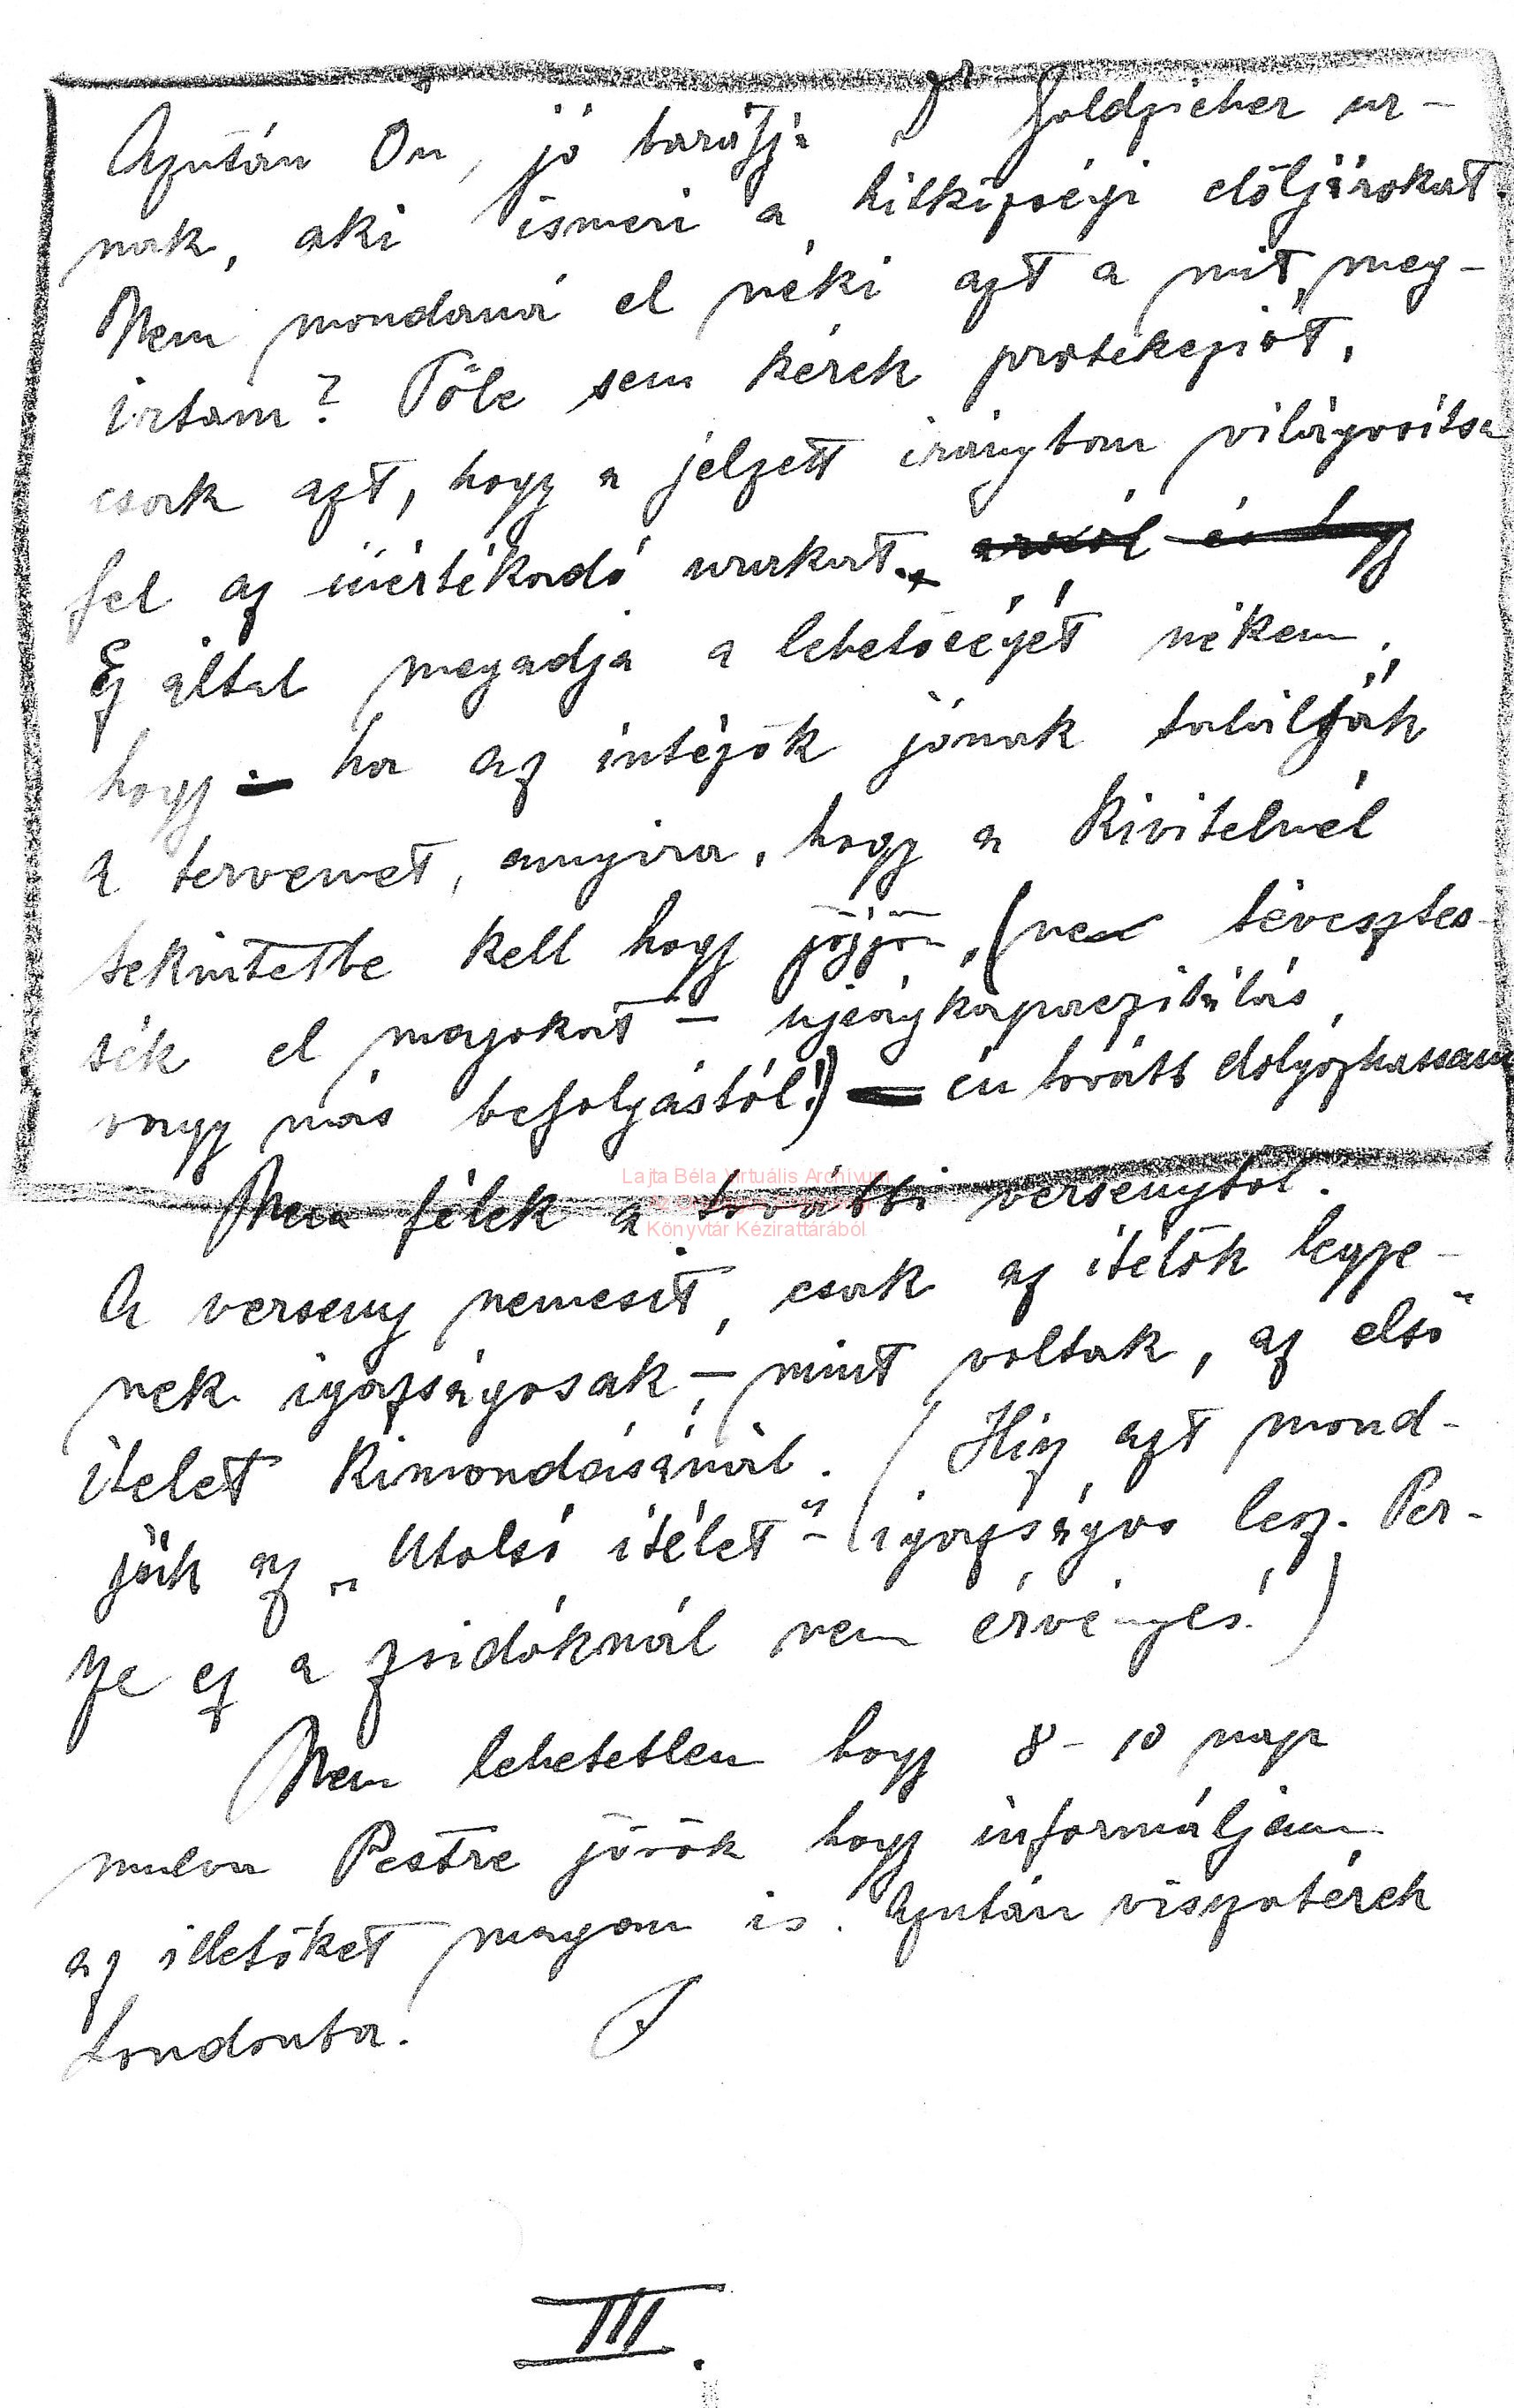 Azután Ön, jó barátja Dr Goldzieher ur-
nak, aki ismeri a hitközségi előljárokat.
Nem mondaná el néki azt a mit meg-
irtam? Tőle sem kérek protekcziót,
csak azt, hogy a jelzett irányban világositsa
fel az mértékadó urakat. és hogy
Ez által megadja a lehetőségét nékem,
hogy – ha az intézők jónak találják
a tervemet, annyira, hogy a kivitelnél
tekintetbe kell hogy jöjjön, (nem tévesztes-
sék el magokat – ujságkapaczitálás,
vagy más befolyástól!) – én tovább dolgozhassam
Nem félek a további versenytől.
A verseny nemesit, csak az itélők legye-
nek igazságosak – mint voltak, az első
itélet kimondásánál. (Hisz azt mond-
ják az „Utolsó itélet" – igazságos lesz. Per-
sze ez a zsidóknál nem érvényes!)
Nem lehetetlen hogy 8 - 10 nap
mulva Pestre jövök hogy informáljam
az illetőket magam is. Azután viszatérek
Londonba.
III.
Lajta Béla Virtuális Archívum
Könyvtár Kézirattárából